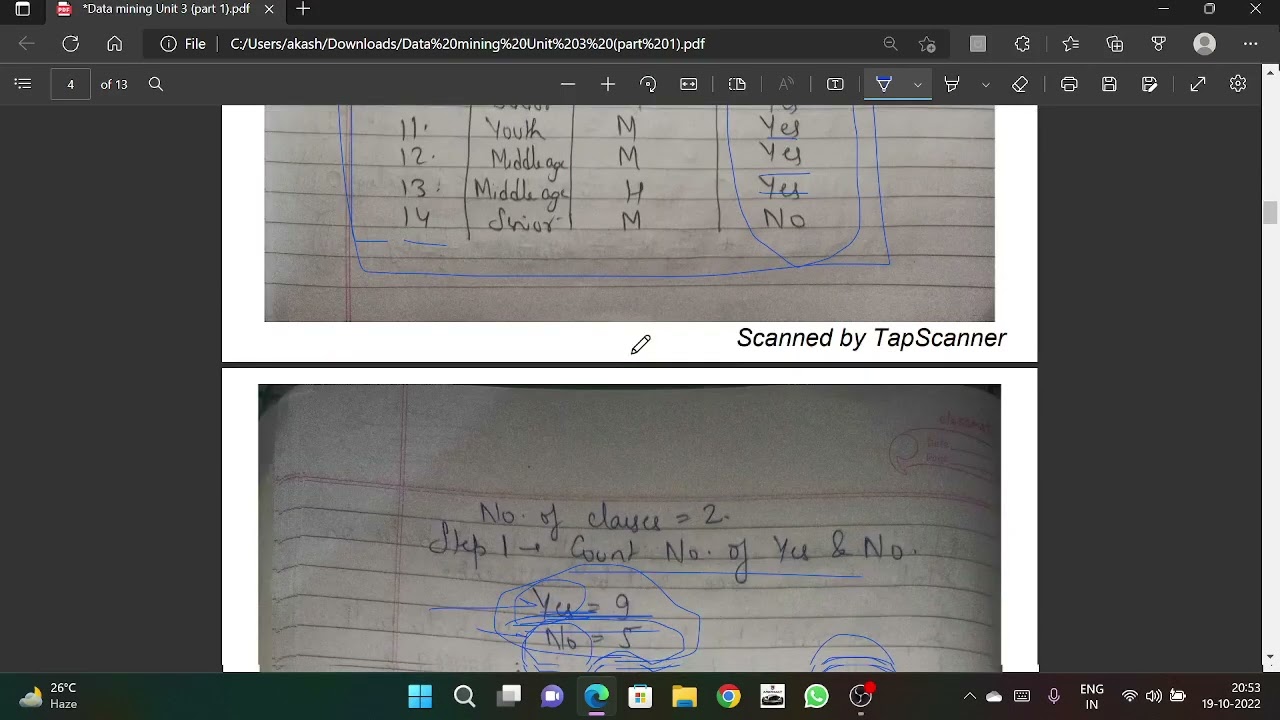 *Data mining Unit 3 (part 1).pdf
File C:/Users/akash/Downloads/Data%20mining%20Unit%203%20(part%201).pdf
4 of 13
11. Youth M Yes
12. Middle age M Yes
13. Middle age H Yes
14 Senior M No
Scanned by TapScanner
classmate
Date
Page
No. of classes = 2.
Step 1 → Count No. of Yes & No.
Yes = 9
No = 5
26°C
Haze
ENG
IN
20:53
19-10-2022